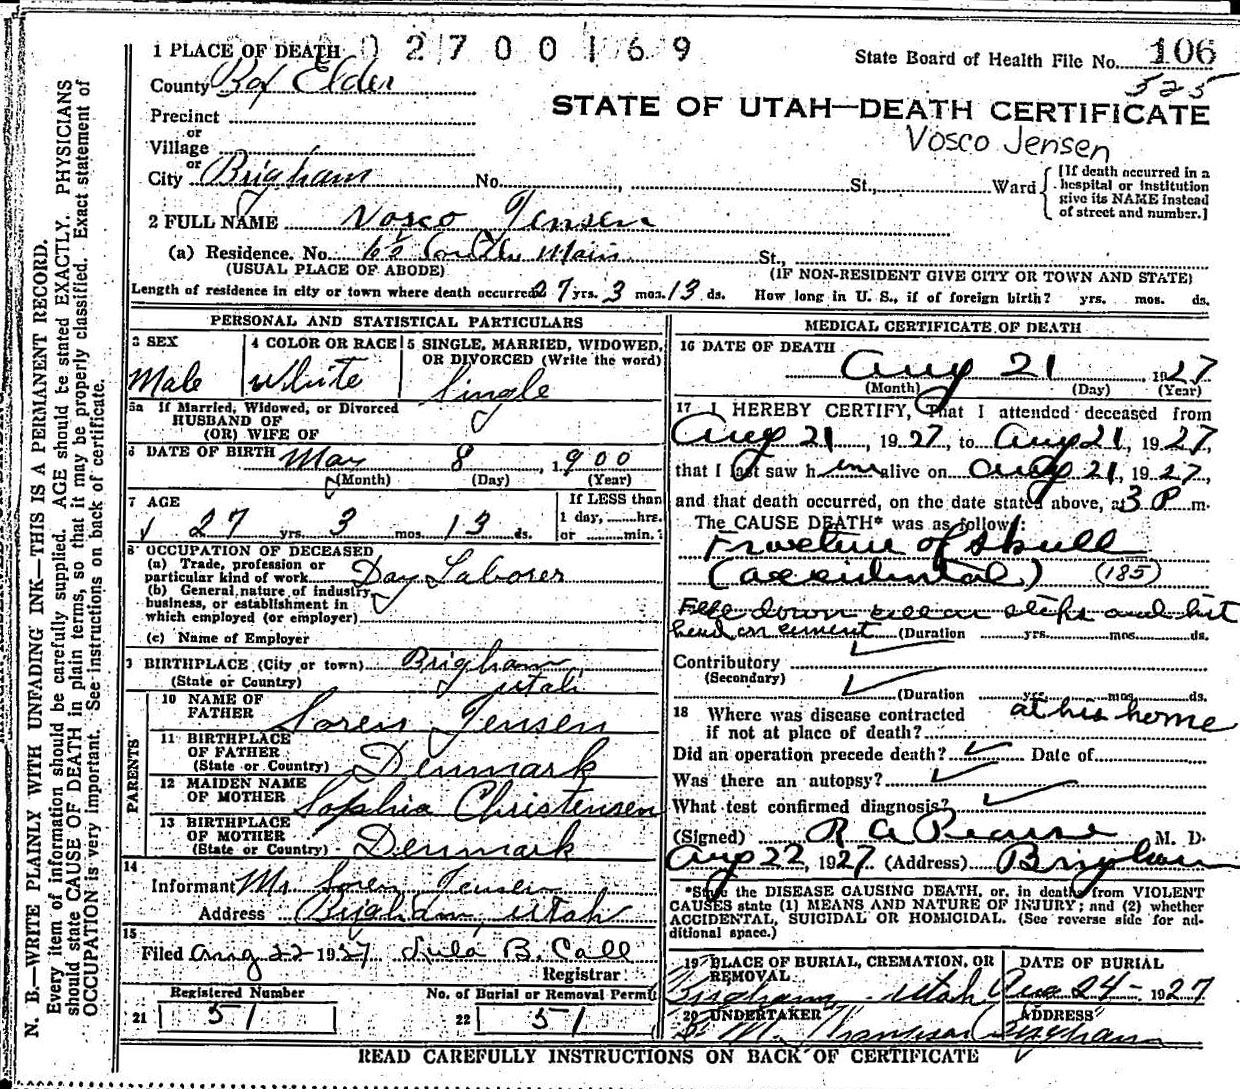 N. B.—WRITE PLAINLY WITH UNFADING INK—THIS IS A PERMANENT RECORD.
Every item of information should be carefully supplied. AGE should be stated EXACTLY. PHYSICIANS
should state CAUSE OF DEATH in plain terms, so that it may be properly classified. Exact statement of
OCCUPATION is very important. See instructions on back of certificate.
1 PLACE OF DEATH 02700169
State Board of Health File No. 106
525
County Box Elder
STATE OF UTAH—DEATH CERTIFICATE
Vosco Jensen
Precinct
or
Village
or
City Brigham No. , St., Ward
[If death occurred in a
hospital or institution
give its NAME instead
of street and number.]
2 FULL NAME Vosco Jensen
(a) Residence. No. South Main St.,
(USUAL PLACE OF ABODE) (IF NON-RESIDENT GIVE CITY OR TOWN AND STATE)
Length of residence in city or town where death occurred 27 yrs. 3 mos. 13 ds. How long in U. S., if of foreign birth? yrs. mos. ds.
PERSONAL AND STATISTICAL PARTICULARS
3 SEX 4 COLOR OR RACE 5 SINGLE, MARRIED, WIDOWED,
OR DIVORCED (Write the word)
Male White Single
5a If Married, Widowed, or Divorced
HUSBAND OF
(OR) WIFE OF
6 DATE OF BIRTH May 8, 1900
(Month) (Day) (Year)
7 AGE If LESS than
1 day, hrs.
27 yrs. 3 mos. 13 ds. or min.
8 OCCUPATION OF DECEASED
(a) Trade, profession or
particular kind of work Day Laborer
(b) General nature of industry,
business, or establishment in
which employed (or employer)
(c) Name of Employer
9 BIRTHPLACE (City or town) Brigham
(State or Country) Utah
PARENTS
10 NAME OF
FATHER Soren Jensen
11 BIRTHPLACE
OF FATHER
(State or Country) Denmark
12 MAIDEN NAME
OF MOTHER Sophia Christensen
13 BIRTHPLACE
OF MOTHER
(State or Country) - Denmark
14
Informant Mr Soren Jensen
Address Brigham, Utah
15
Filed Aug 22 1927 Lula B. Call
Registrar
Registered Number No. of Burial or Removal Permit
21 51 22 51
MEDICAL CERTIFICATE OF DEATH
16 DATE OF DEATH
Aug 21, 1927
(Month) (Day) (Year)
17 I HEREBY CERTIFY, That I attended deceased from
Aug 21, 1927, to Aug 21, 1927,
that I last saw him alive on Aug 21, 1927,
and that death occurred, on the date stated above, at 3 P m.
The CAUSE DEATH* was as follows:
Fracture of skull
(accidental) (185)
Fell down cellar steps and hit
head on cement (Duration yrs. mos. ds.
Contributory
(Secondary)
(Duration yrs. mos. ds.
18 Where was disease contracted at his home
if not at place of death?
Did an operation precede death? Date of
Was there an autopsy?
What test confirmed diagnosis?
(Signed) R A Pearse M. D.
Aug 22, 1927 (Address) Brigham
*State the DISEASE CAUSING DEATH, or, in deaths from VIOLENT
CAUSES state (1) MEANS AND NATURE OF INJURY; and (2) whether
ACCIDENTAL, SUICIDAL OR HOMICIDAL. (See reverse side for ad-
ditional space.)
19 PLACE OF BURIAL, CREMATION, OR DATE OF BURIAL
REMOVAL
Brigham Utah Aug 24 - 1927
20 UNDERTAKER ADDRESS
Brigham
READ CAREFULLY INSTRUCTIONS ON BACK OF CERTIFICATE